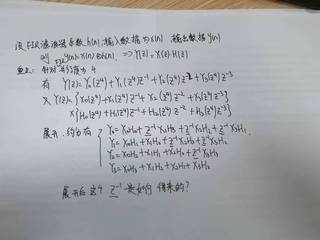 设FIR滤波器系数h(n),输入数据为x(n) 输出数据y(n)
则 y(n)=x(n)⊗h(n), => Y(z)=X(z)·H(z)
FIR
针对并行度为4
有 Y(z)=Y₀(z⁴)+Y₁(z⁴)z⁻¹+Y₂(z⁴)z⁻²+Y₃(z⁴)z⁻³
X Y(z)={X₀(z⁴)+X₁(z⁴)z⁻¹+X₂(z⁴)z⁻²+X₃(z⁴)z⁻³}
×{H₀(z⁴)+H₁(z⁴)z⁻¹+H₂(z⁴)z⁻²+H₃(z⁴)z⁻³}
展开,约心有 { Y₀=X₀H₀+z⁻¹X₁H₃+z⁻¹X₂H₂+z⁻¹X₃H₁
Y₁=X₀H₁+X₁H₀+z⁻¹X₂H₃+z⁻¹X₃H₂
Y₂=X₀H₂+X₁H₁+X₂H₀+z⁻¹X₃H₃
Y₃=X₀H₃+X₁H₂+X₂H₁+X₃H₀
展开后这个z⁻¹是如何得来的?